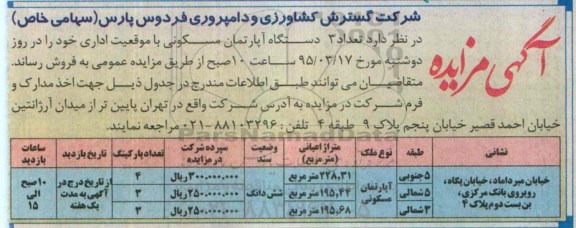 شرکت گسترش کشاورزی و دامپروری فردوس پارس(سهامی خاص)
آگهی مزایده
در نظر دارد تعداد۳ دستگاه آپارتمان مسکونی با موقعیت اداری خود را در روز
دوشنبه مورخ ۹۵/۰۳/۱۷ ساعت ۱۰صبح از طریق مزایده عمومی به فروش رساند.
متقاضیان می توانند طبق اطلاعات مندرج در جدول ذیل جهت اخذ مدارک و
فرم شرکت در مزایده به آدرس شرکت واقع در تهران پایین تر از میدان آرژانتین
خیابان احمد قصیر خیابان پنجم پلاک ۹ طبقه ۴ تلفن: ۸۸۱۰۳۲۹۶-۰۲۱ مراجعه نمایند.
نشانی طبقه نوع ملک متراژ اعیانی (متر مربع) وضعیت سند سپرده شرکت در مزایده تعداد پارکینگ تاریخ بازدید ساعات بازدید
خیابان میرداماد، خیابان پگاه، روبروی بانک مرکزی، بن بست دوم پلاک ۴
۵جنوبی آپارتمان مسکونی ۲۲۸,۳۱ متر مربع شش دانگ ۳۰۰,۰۰۰,۰۰۰ریال ۴ از تاریخ درج در آگهی به مدت یک هفته ۱۰صبح الی ۱۵
۵شمالی ۱۹۵,۴۴ متر مربع ۲۵۰,۰۰۰,۰۰۰ریال ۳
۳شمالی ۱۹۵,۶۸ متر مربع ۲۵۰,۰۰۰,۰۰۰ریال ۳